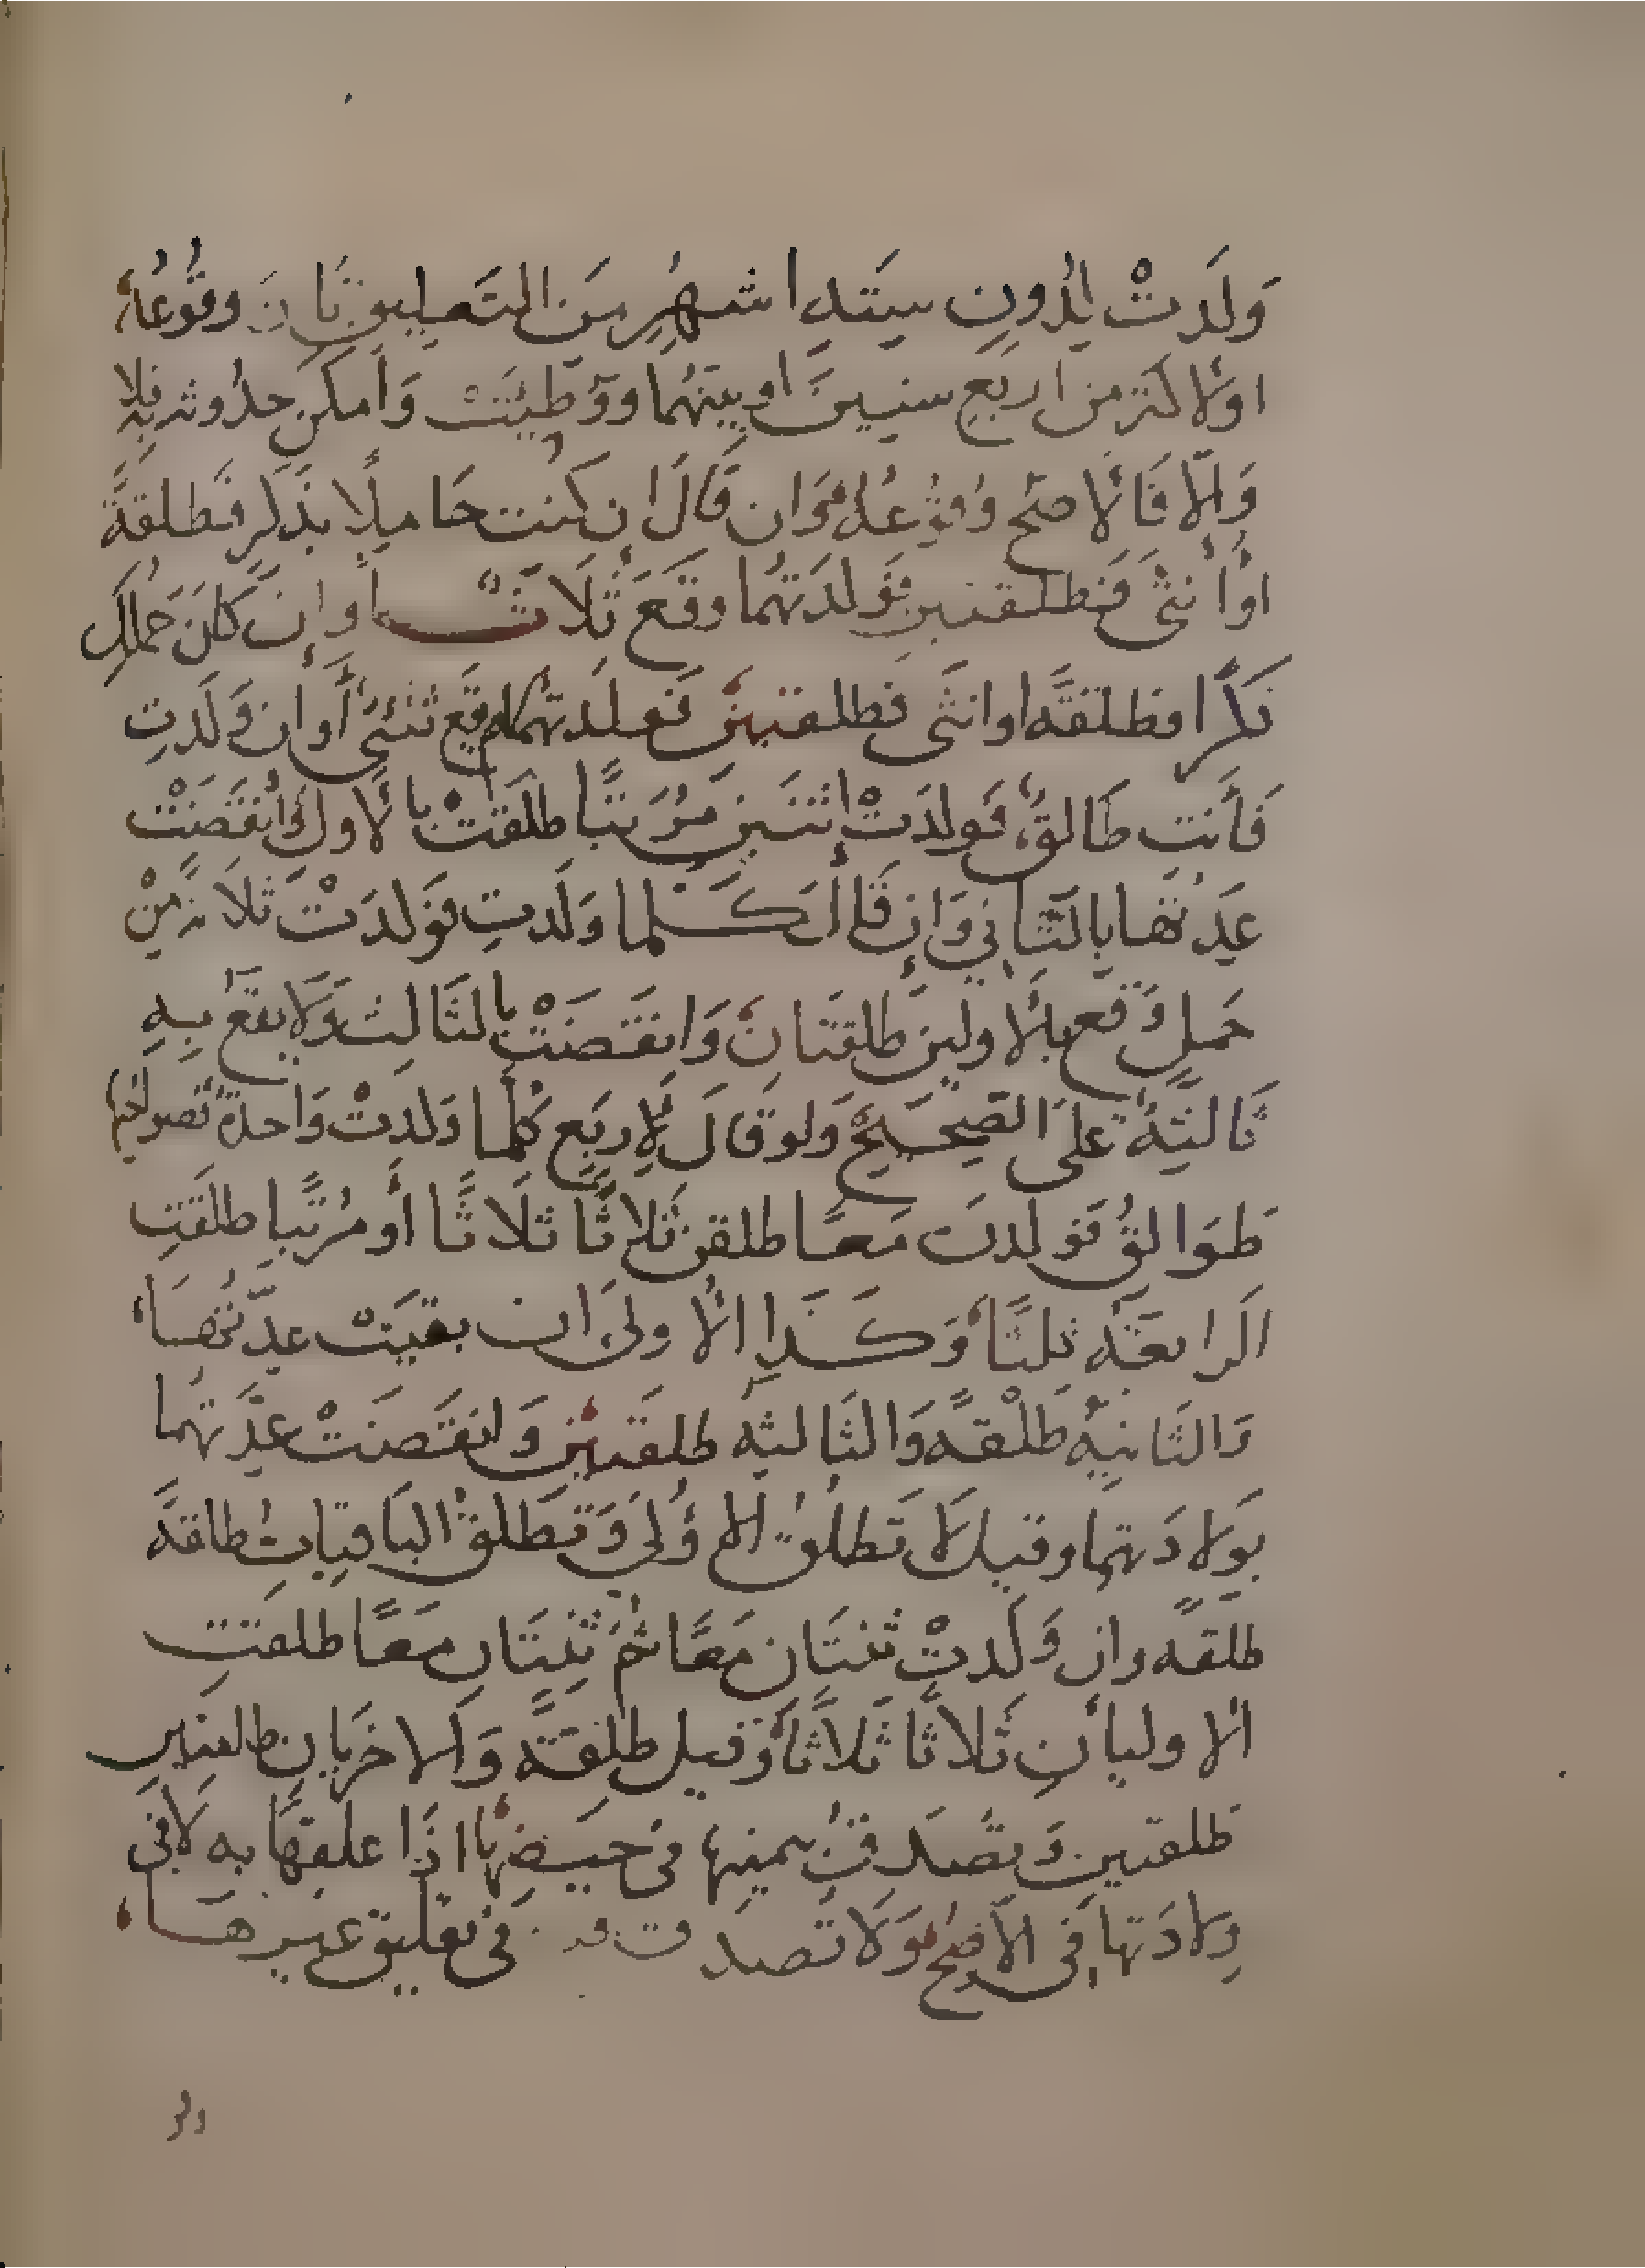 وَلَدَتْ لِدُونِ سِتَّةِ اشهُرٍ مِنَ التَعلِيقِ بَانَ وقُوعُهُ
اولاكثر من اربَعِ سنِينَ اوبينَهُما ووُطِئَتْ وَأمكَنَ حدُوثه به فلا
وَإلّا فَالأصَحّ وُقُوعُهُ وَان قَالَ ان كنت حَامِلًا بذَكرٍ فَطلقةً
اوأنثى فَطلقتين فَوَلَدَتهُما وقَعَ ثلَاثٌ اوإن كانَ حَملكِ
ذكرًا فطلقةً اوانثَى فطلقتين فَولَدتهُما لم يقَع شَئٌ أوإن وَلَدتِ
فَأنتِ طَالقٌ فَولَدَتْ اثنَينِ مُرَتبًا طلقَتْ بالأول وَانقَضَتْ
عِدّتهَا بالثَاني وَإن قَالَ كلما وَلَدتِ فَوَلدَتْ ثلَاثةً مِنْ
حَملٍ وَقَع بالأولَينِ طلقتَانِ وَانقَضَتْ بالثَالث وَلَا يقَعُ بهِ
ثَالثَةٌ علىَ الصَحِيحِ وَلو قَالَ لِأربَعٍ كُلما وَلدتْ وَاحدةٌ فصواحبها
طَوَالقُ فَولدنَ مَعًا طلقن ثلاثًا ثلَاثًا أو مُرتَّبا طلقَتِ
الَرابعَةُ ثلثًا وَكَذا الأولىَ ان بقيَتْ عدّتُهَا
وَالثَانيةُ طَلْقةً وَالثَالثة طلقَتينِ وَانقَضَتْ عدَّتهُما
بوَلادَتهِما وقيل لَا تَطلُق الأُولىَ وَتَطلق البَاقيَاتُ طلقةً
طلقةً وإن وَلَدتْ ثنتَانِ مَعًا ثُم ثِنتَانِ مَعًا طلقتِ
الأوليَانِ ثَلاثًا ثَلاثًا وَقيل طلقةً وَالاخرَيانِ طلقتينِ
طلقتين وَتصَدقُ بيمينِها في حيضِهَا اذَا علقهَا به لَا في
وِلادَتها في الأصَحّ وَلَا تُصَدق فيه في تعليق غيرهَا